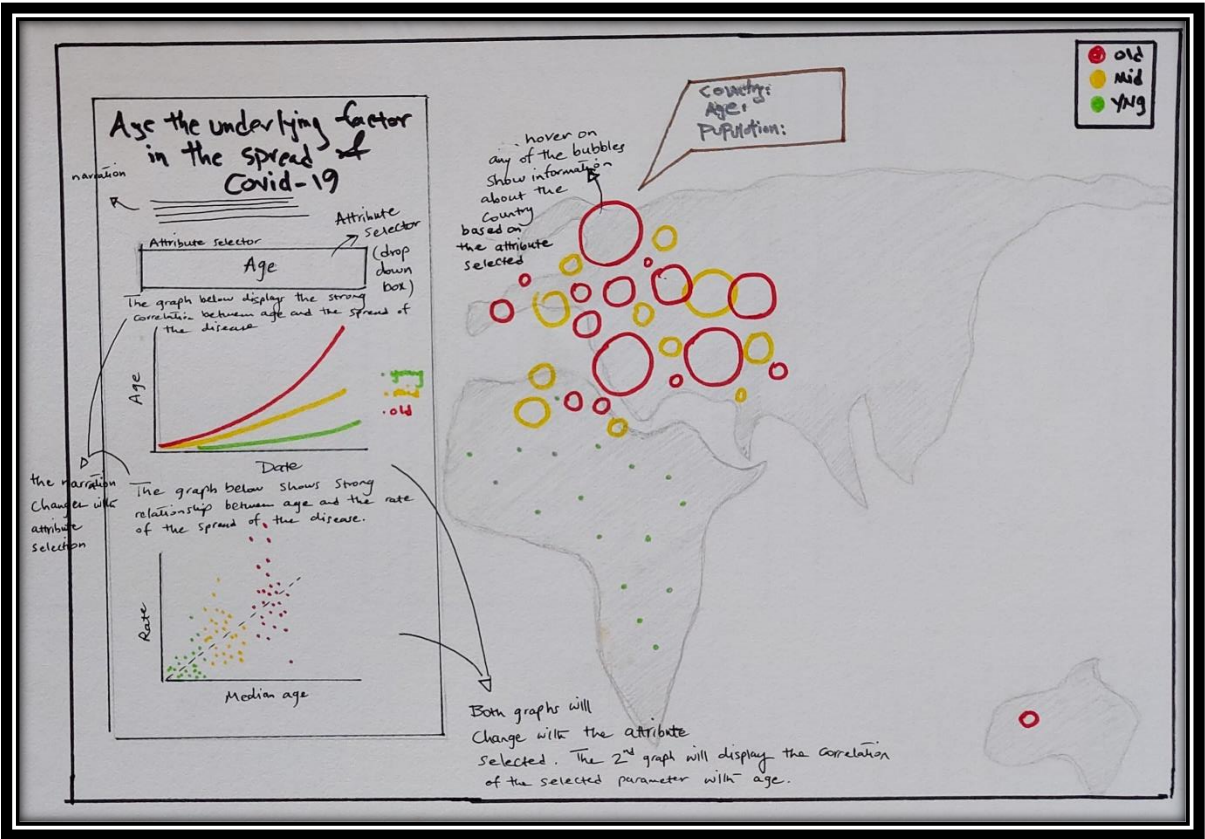 Age the underlying factor
in the spread of
Covid-19
narration
Attribute
selector
(drop
down
box)
Attribute selector
Age
The graph below displays the strong
correlation between age and the spread of
the disease
Age
Date
yg
old
the narration
changes with
attribute
selection
The graph below shows strong
relationship between age and the rate
of the spread of the disease.
Rate
Median age
hover on
any of the bubbles
show information
about the
country
based on
the attribute
selected
Country:
Age:
Pupulation:
old
Mid
YNg
Both graphs will
change with the attribute
selected. The 2nd graph will display the correlation
of the selected parameter with age.